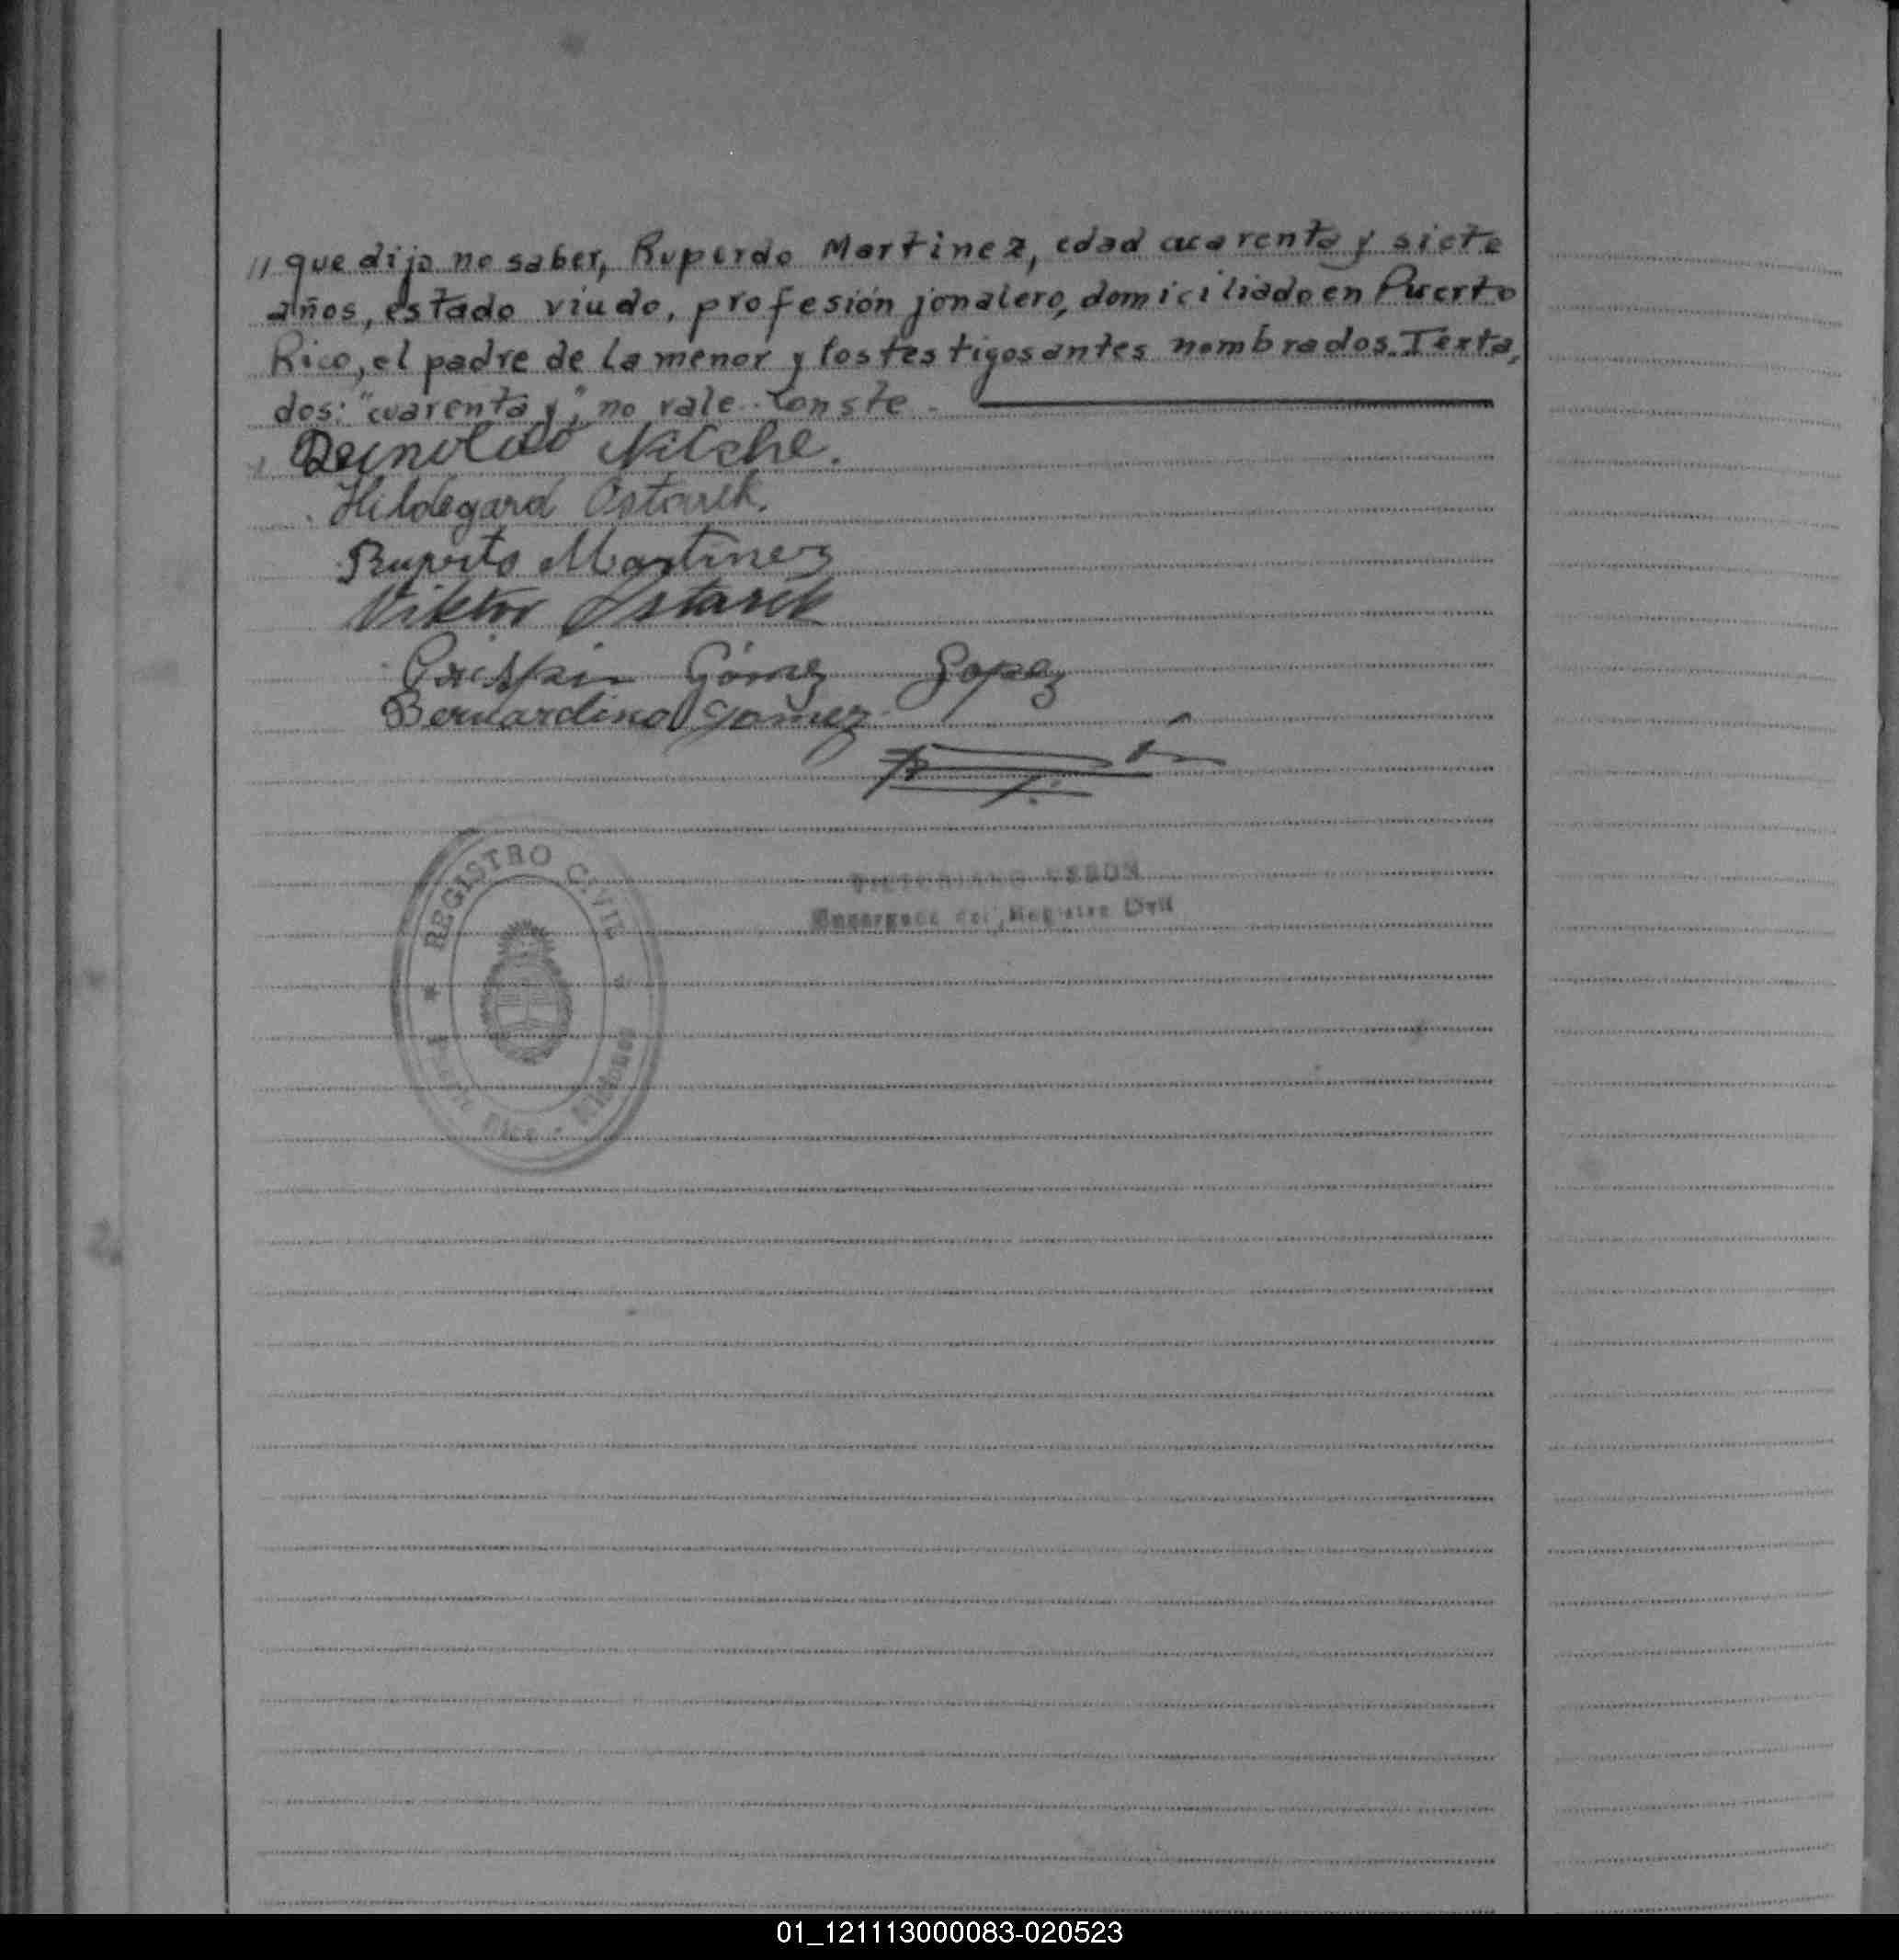 // que dijo no saber, Ruperdo Martinez, edad cuarenta y siete
años, estado viudo, profesión jonalero, domiciliado en Puerto
Rico, el padre de la menor y los testigos antes nombrados. Texta,
dos: "cuarenta y", no vale. Conste.
Reinoldo Nitche.
Hildegard Ostarek.
Ruperto Martinez
Viktor Ostarek
Crispin Gómez Lopez
Bernardino Gomez
REGISTRO CIVIL
Puerto Rico - Misiones
Encargado del Registro Civil
01_121113000083-020523